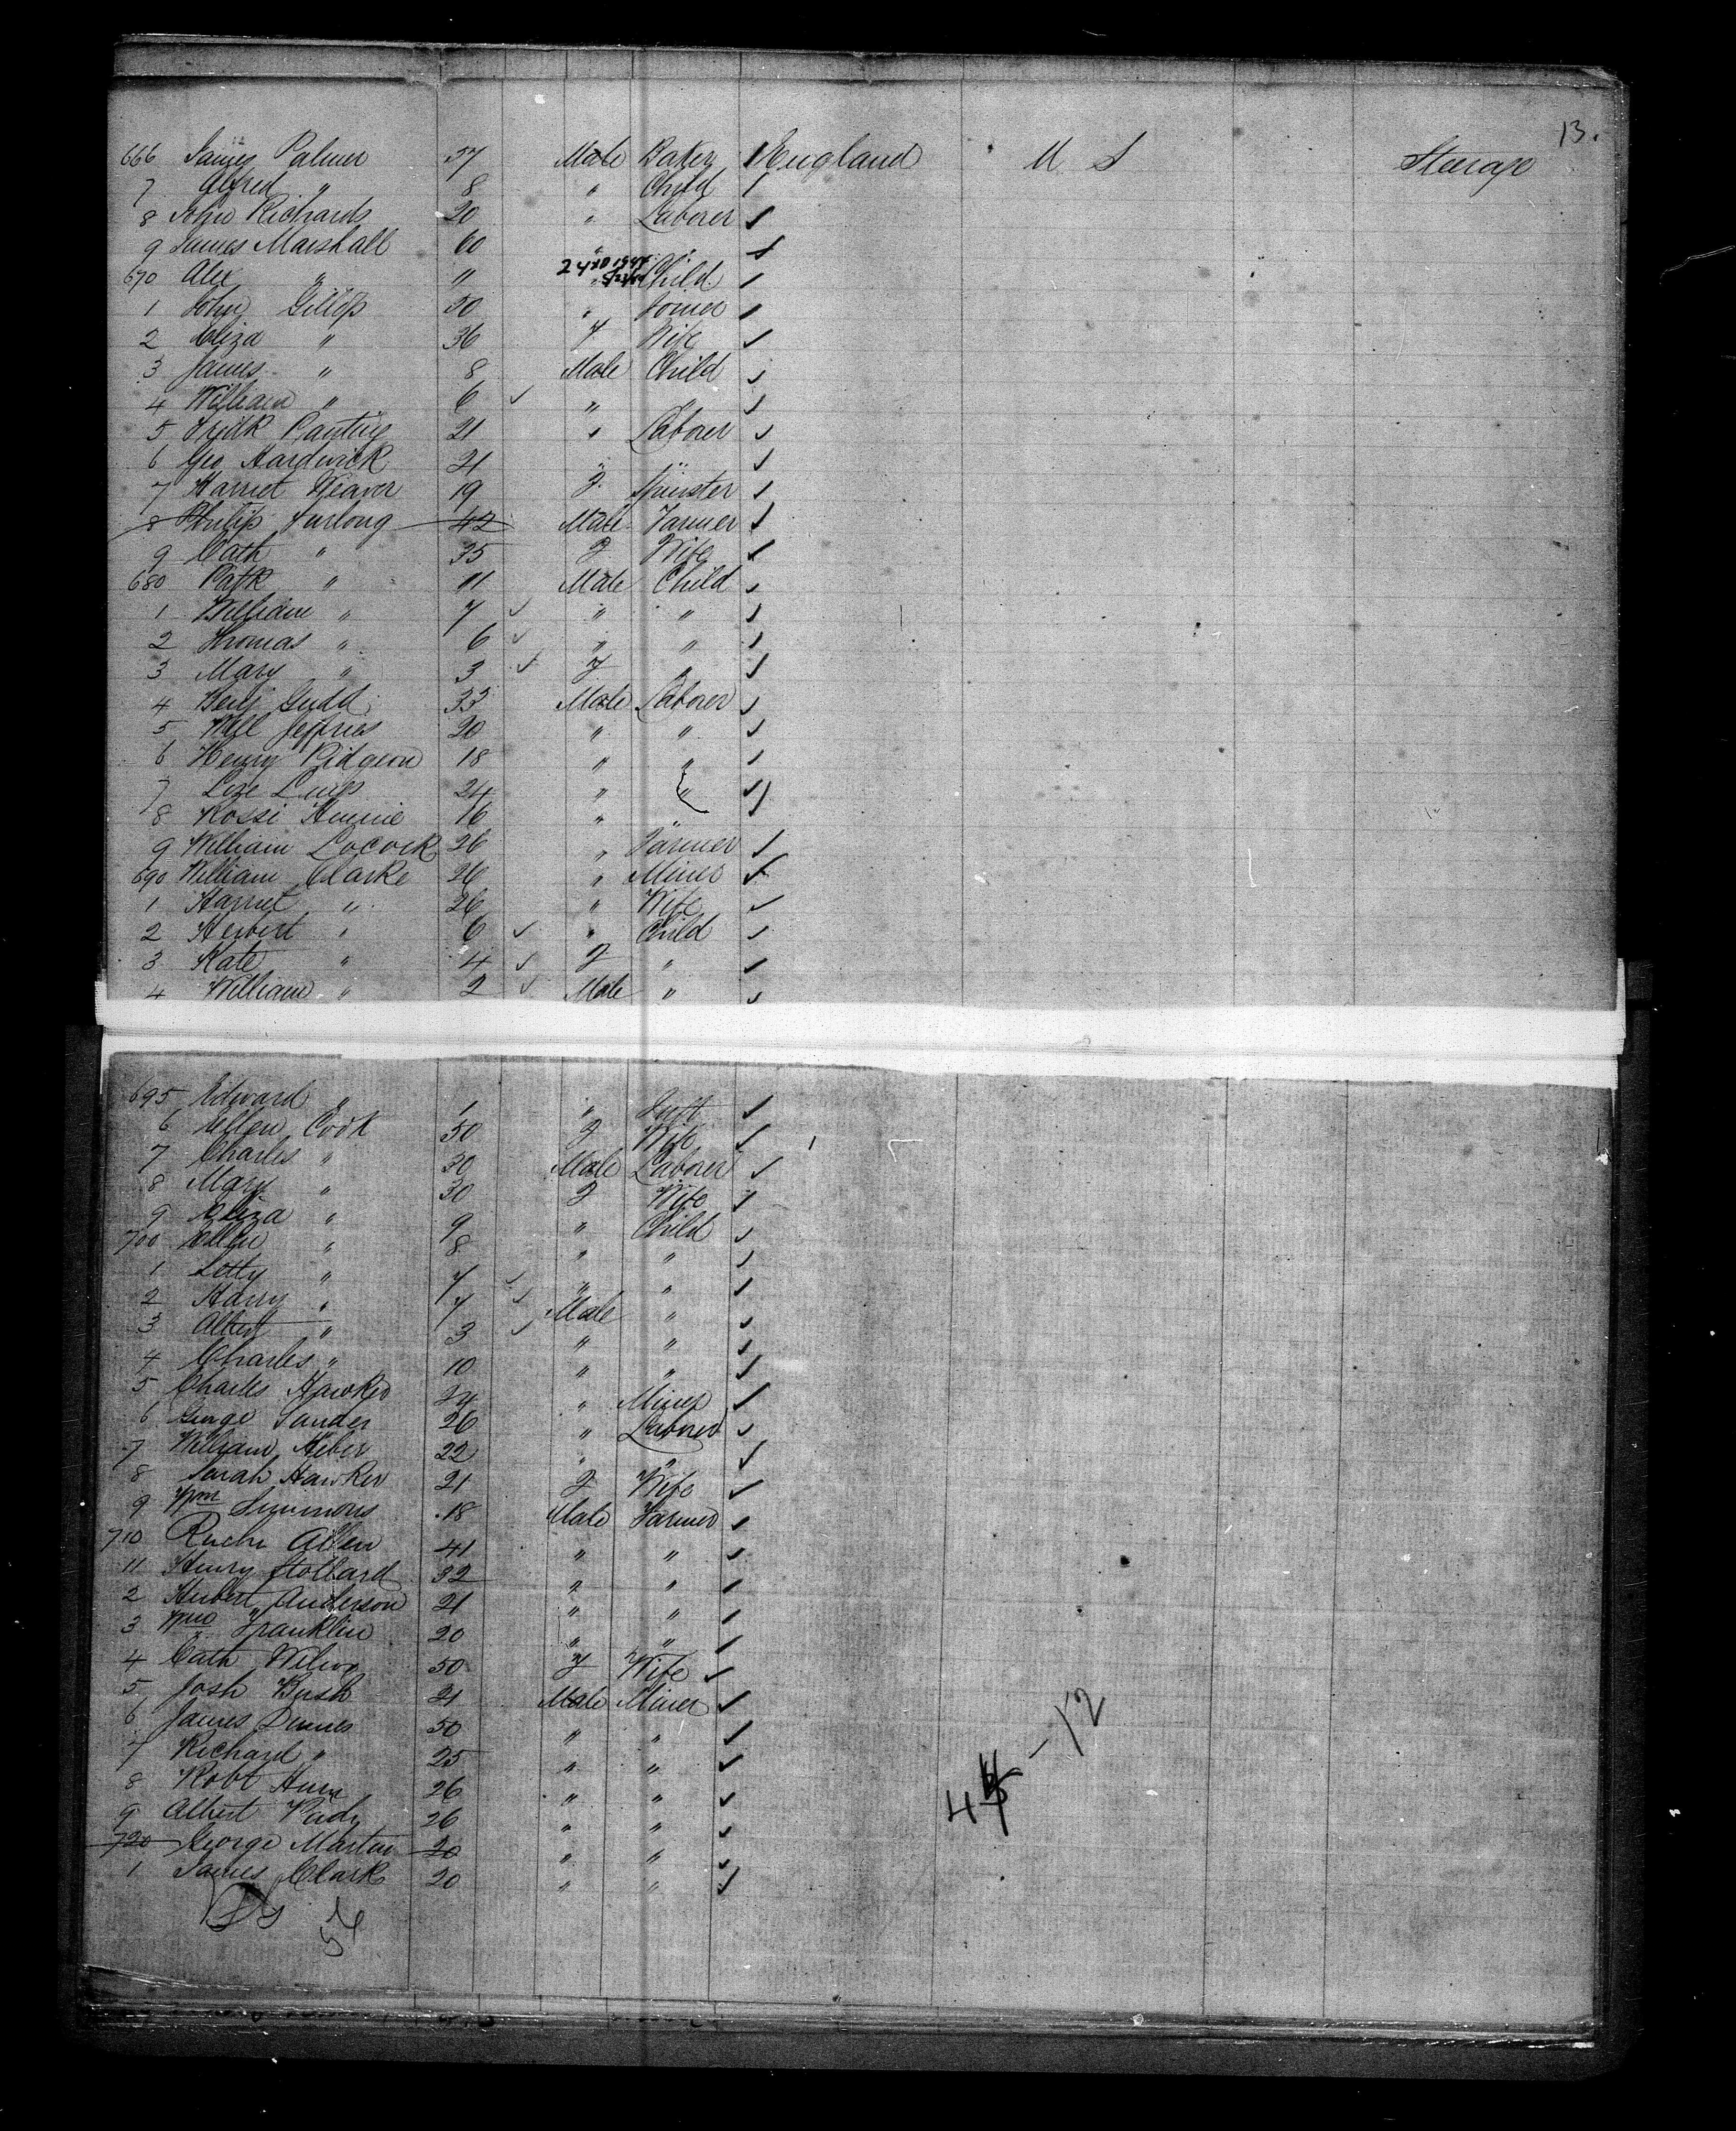 13.
666 James Palmer 37 Male Baker England U S Steerage
7 Alfred " 8 " Child
8 John Richards 20 " Laborer
9 James Marshall 60 " "
670 Alex " 11 " Child
1 John Gillop 50 " Joiner
2 Eliza " 36 F Wife
3 James " 8 Male Child
4 William " 6 " "
5 Fridk Panting 21 " Laborer
6 Geo Hardwick 21 " "
7 Harriet Weaver 19 F. Spinster
8 Philip Furlong 42 Male Farmer
9 Cath " 35 F Wife
680 Patk " 11 Male Child
1 William " 7 " "
2 Thomas " 6 " "
3 Mary " 3 F "
4 Benj Gudd 33 Male Laborer
5 Will Jeffries 20 " "
6 Henry Pidgeon 18 " "
7 24 " "
8 Rossi 16 " "
9 William Locock 26 " Farmer
690 William Clarke 26 " Miner
1 Harriet " 26 " Wife
2 Herbert " 6 " Child
3 Kate " 4 F "
4 William " 2 Male "
695 Edward " 1 " Inft
6 Ellen Cook 50 F Wife
7 Charles " 30 Male Laborer
8 Mary " 30 F Wife
9 Eliza " 9 " Child
700 Ellen " 8 " "
1 Letty " 7 " "
2 Harry " 7 Male "
3 Albert " 3 " "
4 Charles " 10 " "
5 Charles Hawker 24 " Miner
6 George Sander 26 " Laborer
7 William Heber 22 " "
8 Sarah Hawker 21 F Wife
9 Wm Simmons 18 Male Farmer
710 Allen 41 " "
11 Henry Hollard 32 " "
2 Herbert Anderson 21 " "
3 Wm Franklin 20 " "
4 Cath 50 F Wife
5 Josh Bush 21 Male Miner
6 James 50 " "
7 Richard " 25 " "
8 Robt 26 " "
9 Albert 26 " "
720 George Martin 20 " "
1 James Clark 20 " "
- 12